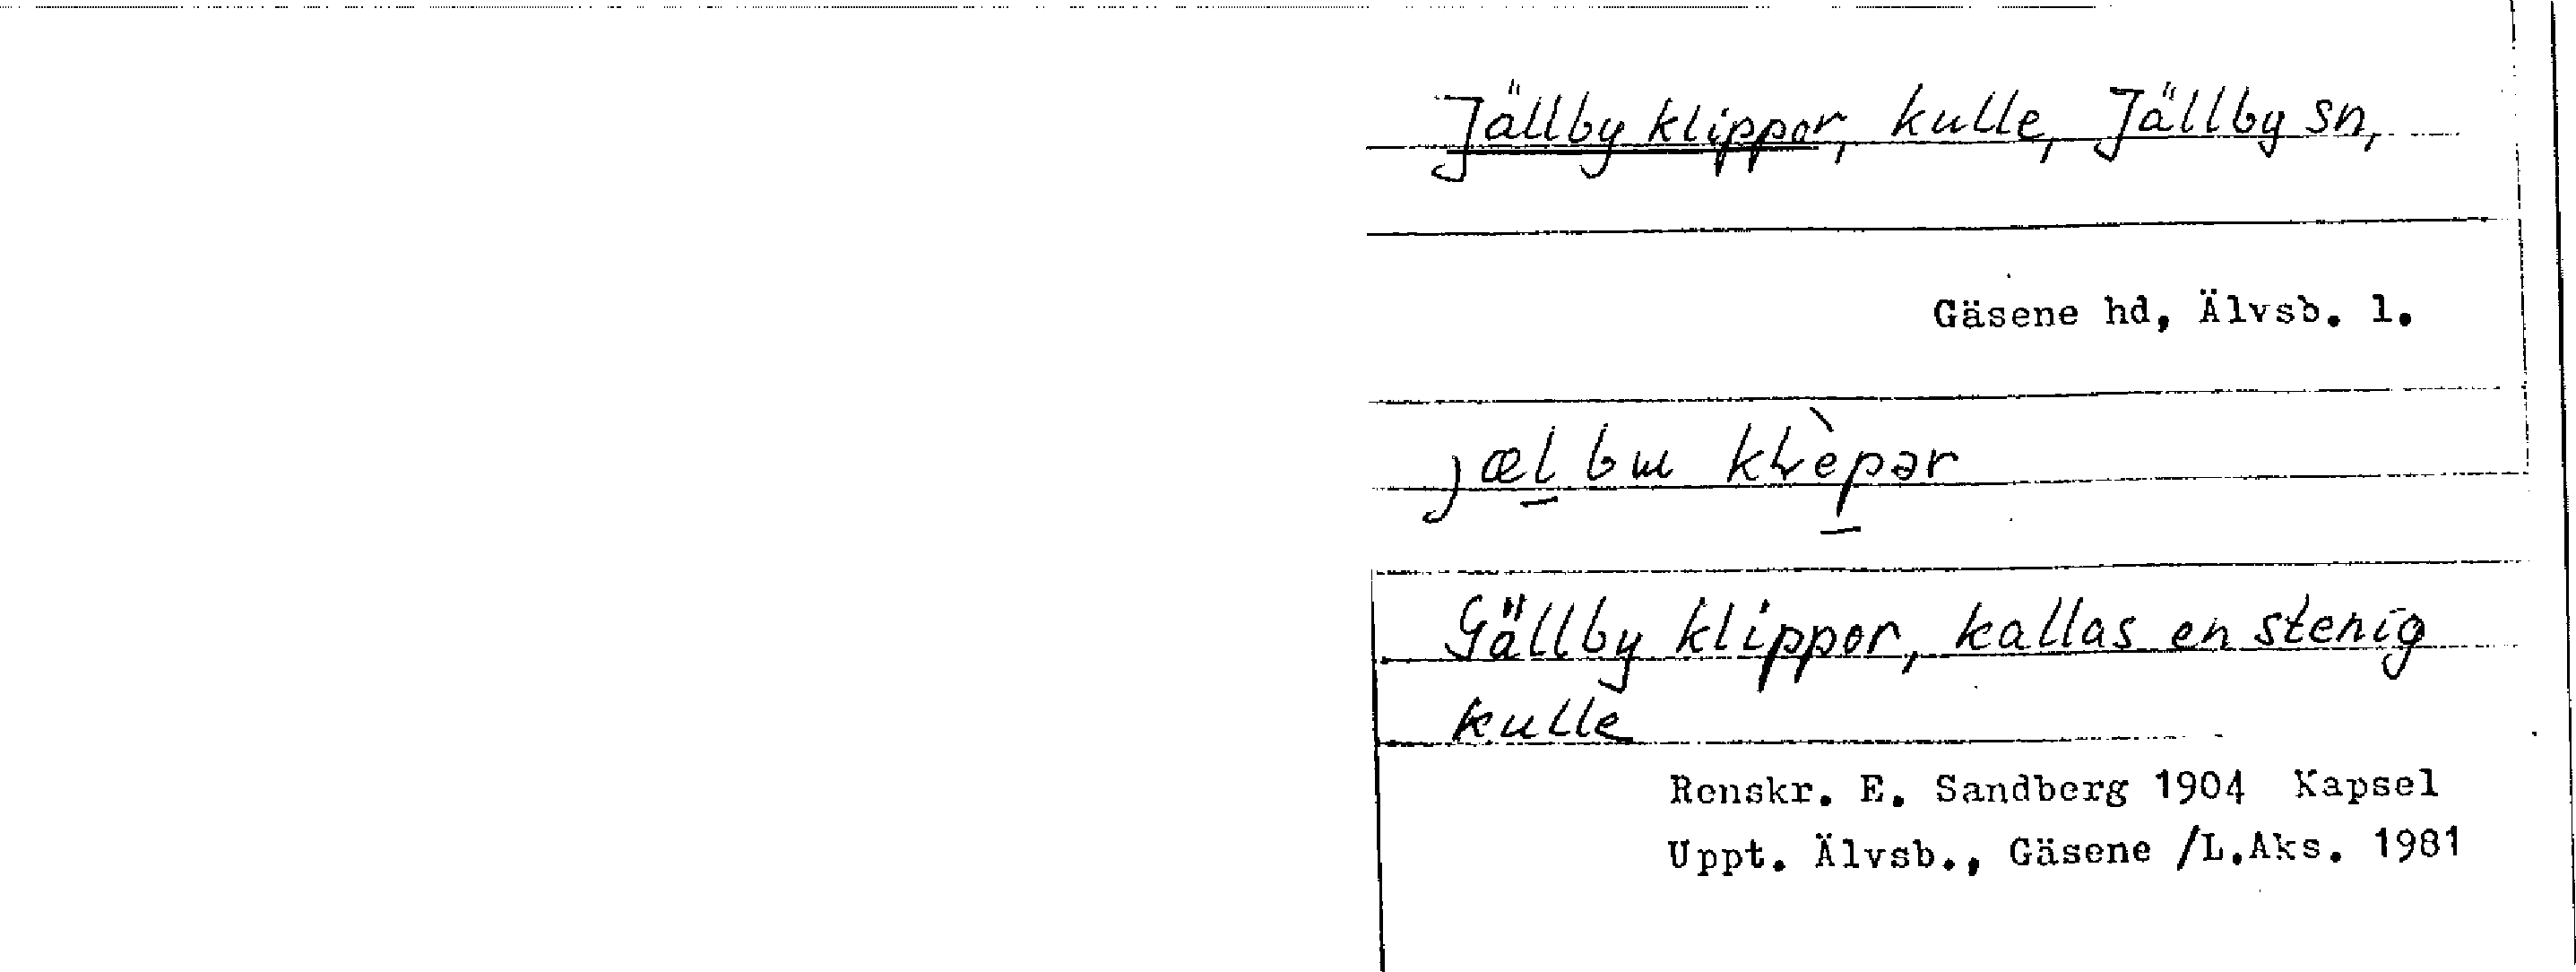 Jällby klippor, kulle, Jällby sn,
Gäsene hd, Älvsb. l.
Gällby klippor, kallas en stenig
kulle
Renskr. E. Sandberg 1904 Kapsel
Uppt. Älvsb., Gäsene /L.Aks. 1981